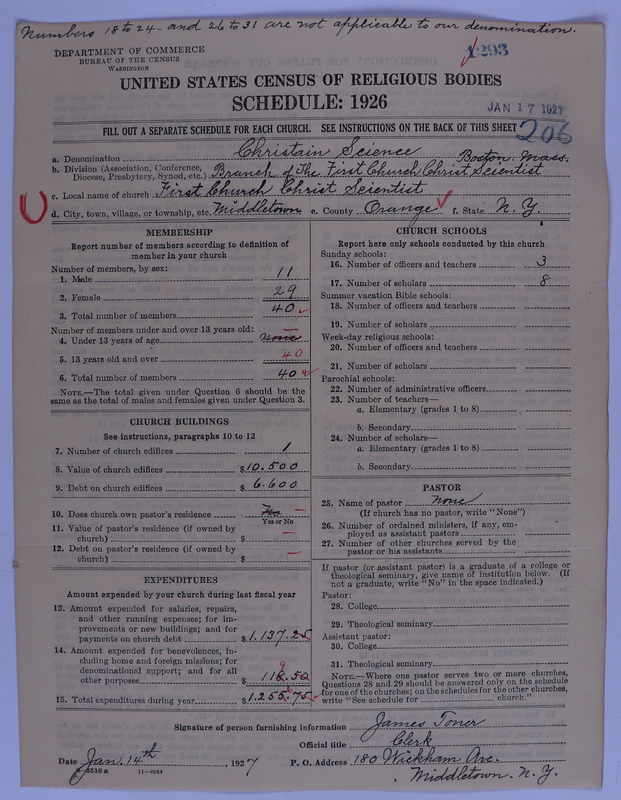 Numbers 18 to 24 - and 26 to 31 are not applicable to our denomination.
DEPARTMENT OF COMMERCE
BUREAU OF THE CENSUS
WASHINGTON
1293
UNITED STATES CENSUS OF RELIGIOUS BODIES
SCHEDULE: 1926
JAN 17 1927
FILL OUT A SEPARATE SCHEDULE FOR EACH CHURCH. SEE INSTRUCTIONS ON THE BACK OF THIS SHEET
206
a. Denomination Christain Science Boston. Mass.
b. Division (Association, Conference, Diocese, Presbytery, Synod, etc.) Branch of The First Church Christ Scientist
c. Local name of church First Church Christ Scientist
d. City, town, village, or township, etc. Middletown e. County Orange f. State N. Y.
MEMBERSHIP
Report number of members according to definition of
member in your church
Number of members, by sex:
1. Male 11
2. Female 29
3. Total number of members 40
Number of members under and over 13 years old:
4. Under 13 years of age none —
5. 13 years old and over 40
6. Total number of members 40
NOTE.—The total given under Question 6 should be the
same as the total of males and females given under Question 3.
CHURCH BUILDINGS
See instructions, paragraphs 10 to 12
7. Number of church edifices 1
8. Value of church edifices $10.500
9. Debt on church edifices $6.600
10. Does church own pastor's residence No —
Yes or No
11. Value of pastor's residence (if owned by
church) $ —
12. Debt on pastor's residence (if owned by
church) $ —
EXPENDITURES
Amount expended by your church during last fiscal year
13. Amount expended for salaries, repairs,
and other running expenses; for im-
provements or new buildings; and for
payments on church debt $1.137.25
14. Amount expended for benevolences, in-
cluding home and foreign missions; for
denominational support; and for all
other purposes 118.50
15. Total expenditures during year $1.255.75
CHURCH SCHOOLS
Report here only schools conducted by this church
Sunday schools:
16. Number of officers and teachers 3
17. Number of scholars 8
Summer vacation Bible schools:
18. Number of officers and teachers
19. Number of scholars
Week-day religious schools:
20. Number of officers and teachers
21. Number of scholars
Parochial schools:
22. Number of administrative officers
23. Number of teachers—
a. Elementary (grades 1 to 8)
b. Secondary
24. Number of scholars—
a. Elementary (grades 1 to 8)
b. Secondary
PASTOR
25. Name of pastor none
(If church has no pastor, write "None")
26. Number of ordained ministers, if any, em-
ployed as assistant pastors
27. Number of other churches served by the
pastor or his assistants
If pastor (or assistant pastor) is a graduate of a college or
theological seminary, give name of institution below. (If
not a graduate, write "No" in the space indicated.)
Pastor:
28. College
29. Theological seminary
Assistant pastor:
30. College
31. Theological seminary
NOTE.—Where one pastor serves two or more churches,
Questions 28 and 29 should be answered only on the schedule
for one of the churches; on the schedules for the other churches,
write "See schedule for church."
Signature of person furnishing information James Toner
Official title Clerk
Date Jan. 14th, 1927 P. O. Address 180 Wickham Ave.
Middletown. N. Y.
8-5518 a 11-9054